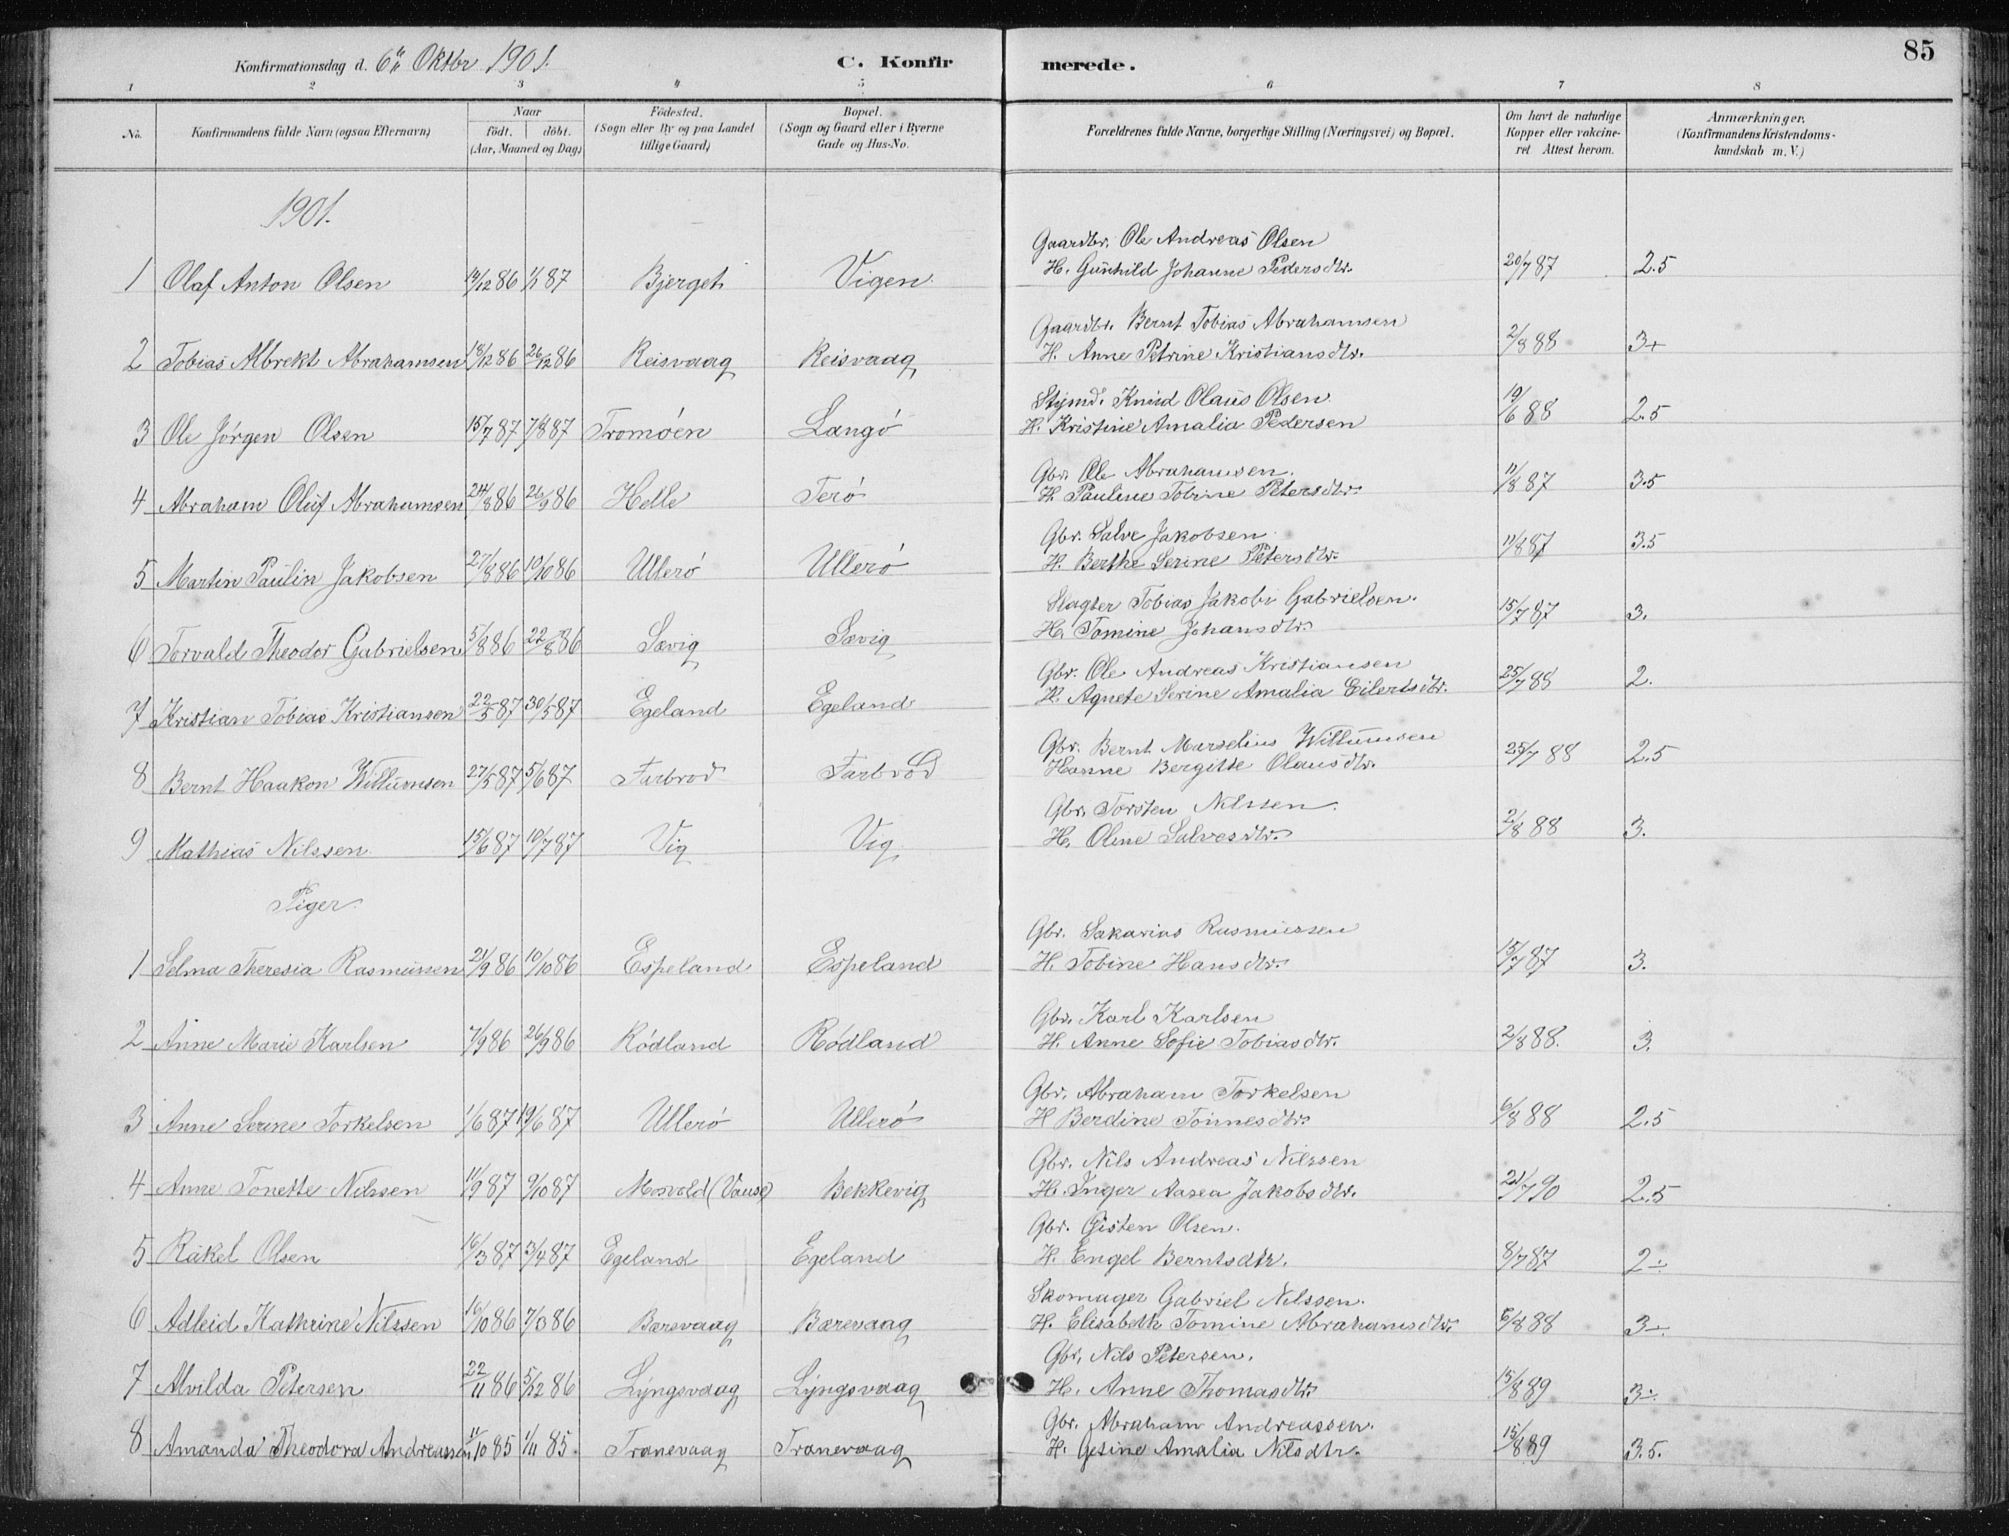 85
Konfirmationsdag d. 6te Oktbr 1901. C. Konfirmerede.
1 2 3 4 5 6 7 8
No. Konfirmandens fulde Navn (ogsaa Efternavn) Naar født. døbt. (Aar, Maaned og Dag) Fødested. (Sogn eller By og paa Landet tillige Gaard) Bopæl. (Sogn og Gaard eller i Byerne Gade og Hus-No. Forældrenes fulde Navne, borgerlige Stilling (Næringsvei) og Bopæl. Om havt de naturlige Kopper eller vakcineret Attest herom. Anmærkninger. (Konfirmandens Kristendomskundskab m. V.)
1901.
Gaardbr. Ole Andreas Olsen
1 Olaf Anton Olsen 14/12 86 1/1 87 Bjerget Vigen H. Gunhild Johanne Pedersdtr. 20/7 87 2.5
Gaardbr. Bernt Tobias Abrahamsen
2 Tobias Albrekt Abrahamsen 18/12 86 26/12 86 Reisvaag Reisvaag H. Anne Petrine Kristiansdtr. 2/8 88 3+
Stymd. Knud Olaus Olsen
3 Ole Jörgen Olsen 15/7 87 7/8 87 Tromöen Langö H. Kristine Amalia Pedersen 19/6 88 2.5
Gbr. Ole Abrahamsen.
4 Abraham Oluf Abrahamsen 24/8 86 26/9 86 Helle Terö H. Pauline Tobine Petersdtr. 11/8 87 3.5
Gbr. Salve Jakobsen
5 Martin Paulin Jakobsen 27/8 86 10/10 86 Ullerö Ullerö H. Berthe Serine Petersdtr. 11/8 87 3.5
Slagter Tobias Jakobi Gabrielsen.
6 Torvald Theodor Gabrielsen 5/8 86 22/8 86 Sævig Sævig H. Tomine Johansdtr. 15/7 87 3.
Gbr. Ole Andreas Kristiansen
7 Kristian Tobias Kristiansen 22/5 87 30/5 87 Egeland Egeland H. Agnete Serine Amalia Eilertsdtr. 25/7 88 2.
Gbr. Bernt Marselius Willumsen
8 Bernt Haakon Willumsen 27/5 87 5/6 87 Farbrod Farbrod Hanne Bergitte Olausdtr. 25/7 88 2.5
Gbr. Torsten Nilssen.
9 Mathias Nilssen 15/6 87 10/7 87 Vig Vig H. Olene Salvesdtr. 2/8 88 3.
Piger.
Gbr. Sakarias Rasmussen
1 Selma Theresia Rasmussen 21/9 86 10/10 86 Espeland Espeland H. Tobine Hansdtr. 15/7 87 3.
Gbr. Karl Karlsen
2 Anne Marie Karlsen 7/9 86 26/9 86 Rödland Rödland H. Anne Sofie Tobiasdtr. 2/8 88. 3.
Gbr. Abraham Torkelsen
3 Anne Serine Torkelsen 1/6 87 19/6 87 Ullerö Ullerö H Berdine Tönnesdtr. 6/8 88 2.5
Gbr. Nils Andreas Nilssen
4 Anne Tonette Nilssen 11/9 87 9/10 87 Mosvold (Vanse) Bekkevig H. Inger Aasea Jakobsdtr. 21/7 90 2.5
Gbr. Gisten Olsen.
5 Rakel Olsen 16/3 87 3/4 87 Egeland Egeland H. Engel Berntsdtr. 8/7 87 2÷
Skomager Gabriel Nilssen.
6 Adleid Kathrine Nilssen 16/10 86 7/3 86 Bærevaag Bærevaag H. Elisabeth Tomine Abrahamsdtr. 6/8 88 3÷
Gbr. Nils Petersen.
7 Alvilda Petersen 22/11 86 5/12 86 Lyngsvaag Lyngsvaag H. Anne Thomasdtr. 15/8 89 3÷
Gbr. Abraham Andreassen.
8 Amanda Theodora Andreassen 11/10 85 1/11 85. Tranevaag Tranevaag H. Gesine Amalia Nilsdtr. 15/8 89 3.5.